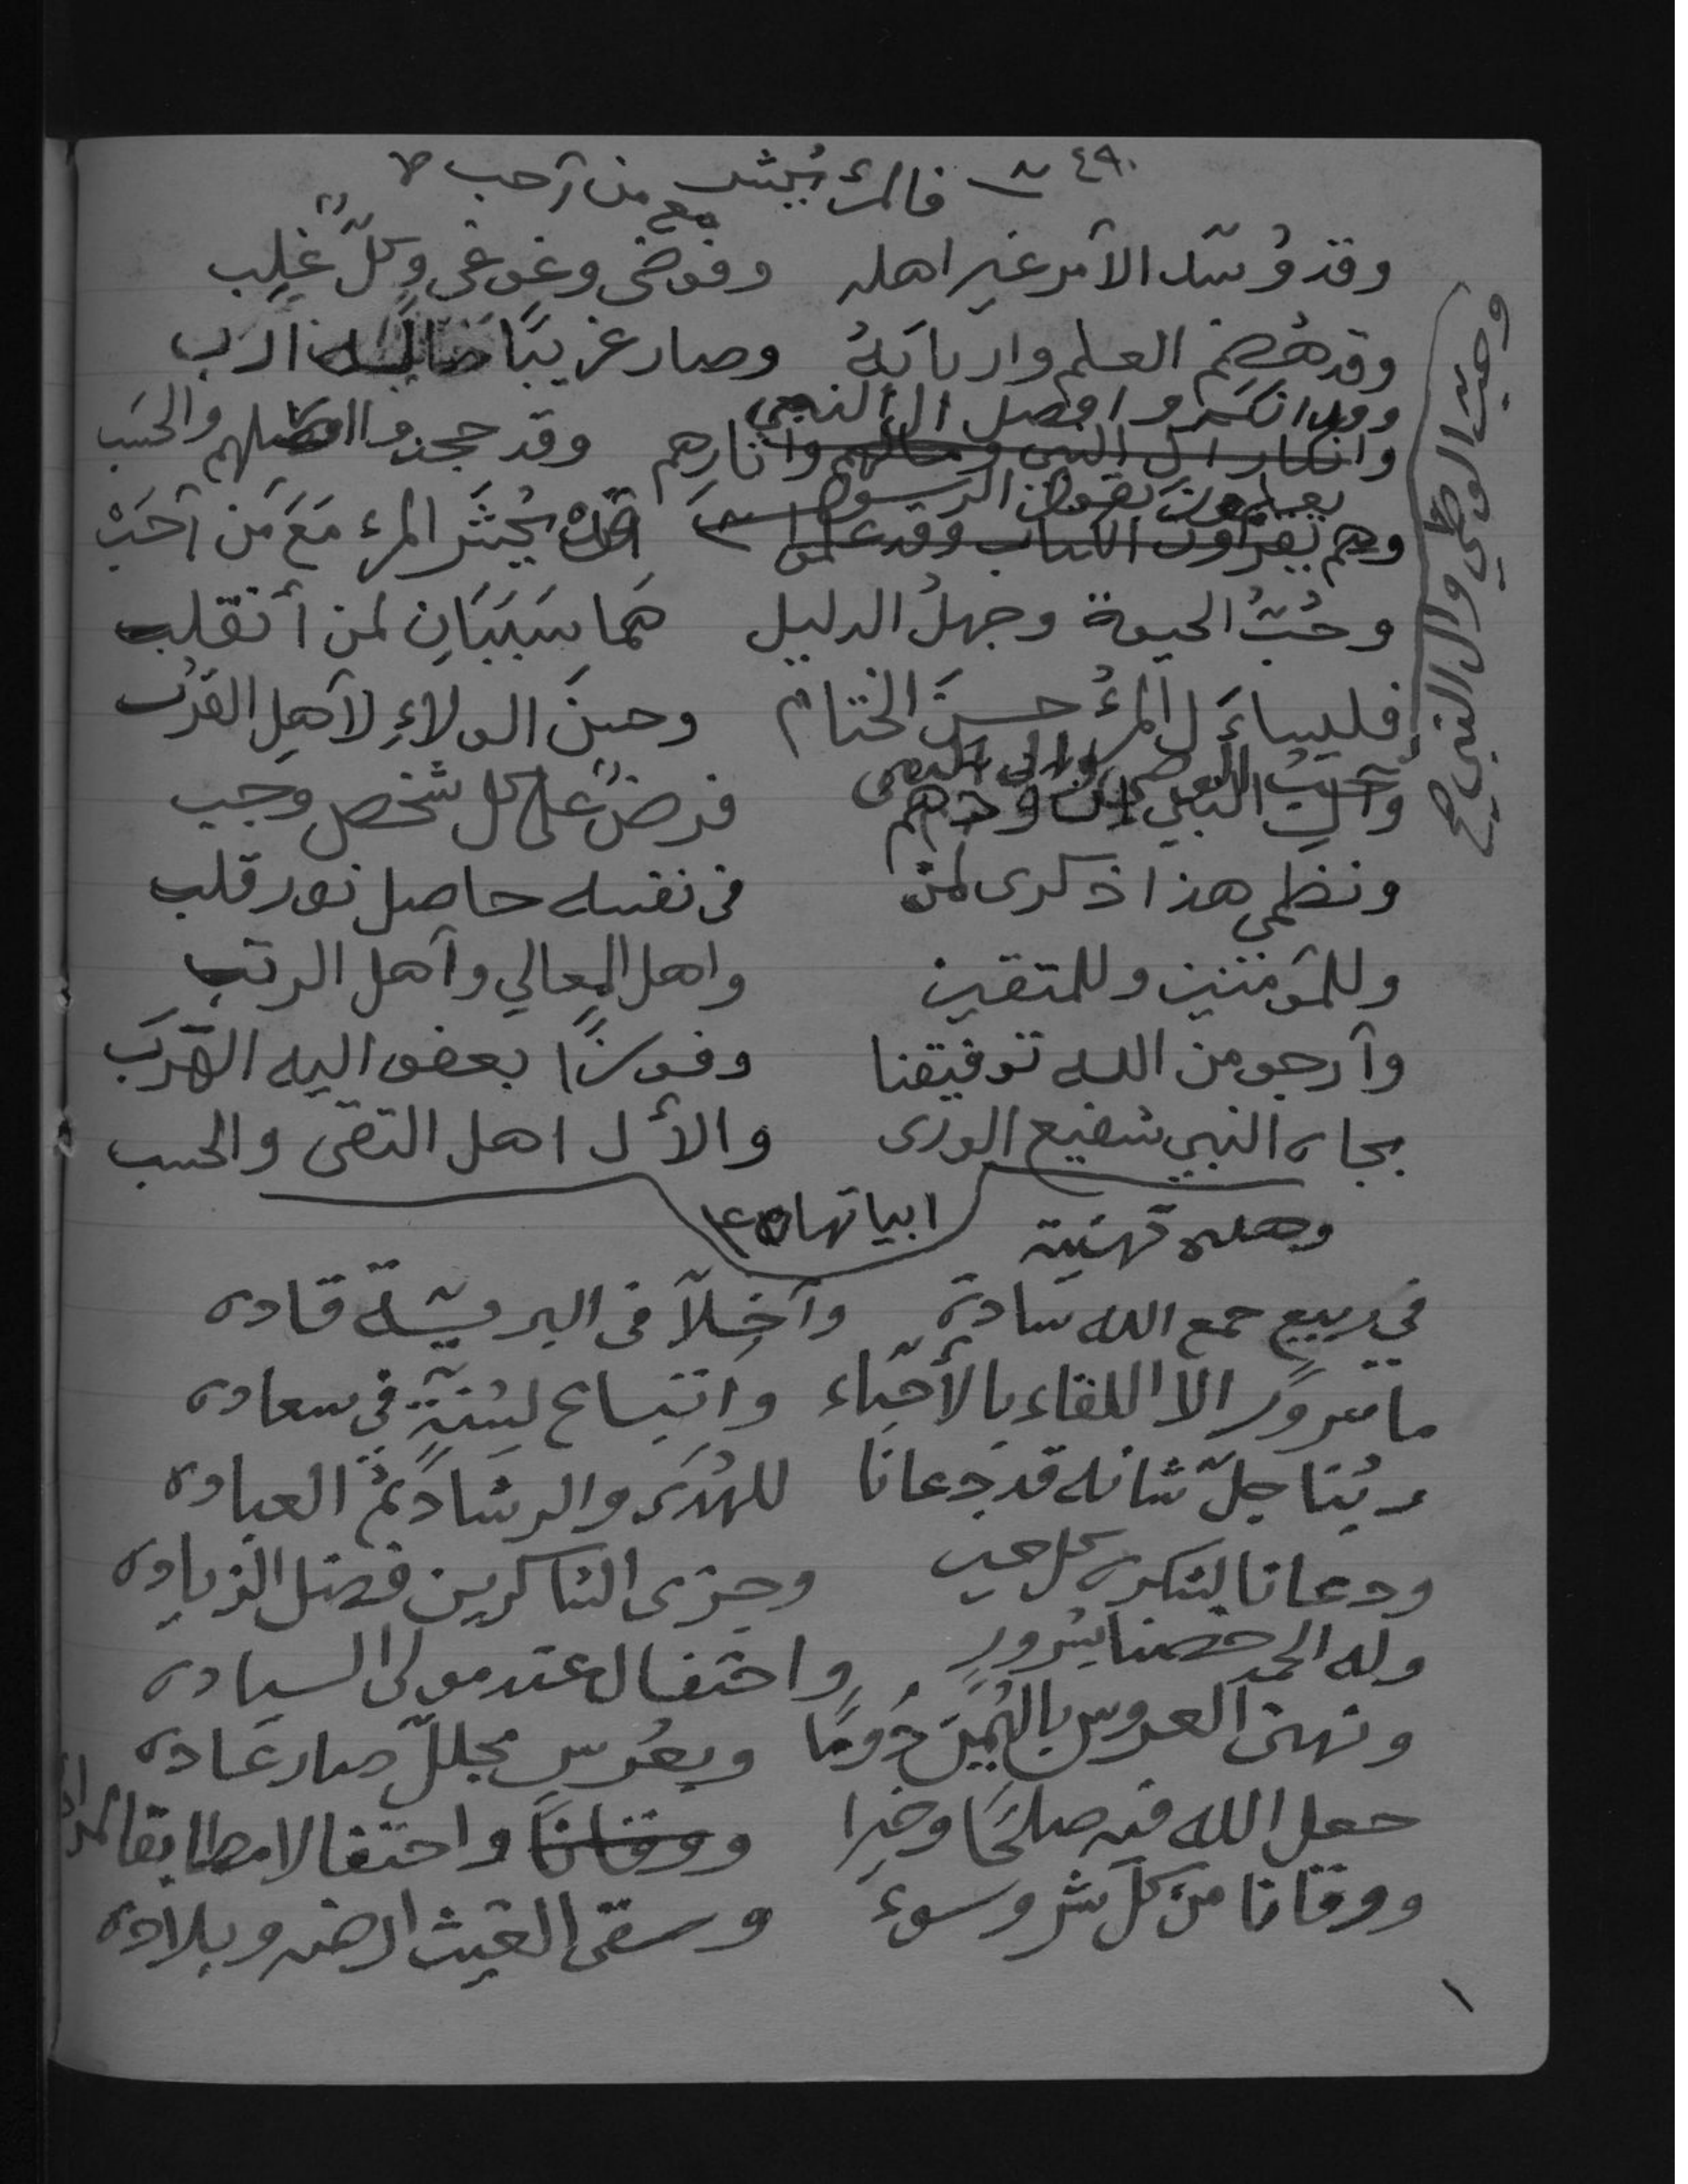 ٤٩٠ فالمرء يُحشر مع من أحب
وقد وُسّد الأمر غير اهله وفوضى وغوغى وكلٌّ غلب
وقد هُضِم العلم واربابهُ وصار غريبًا
وقد انكروا فضل ال النبي وقد جحدوا فضلهم والحسب
وانكار ال النبي وآثارهم
يعلمون بقول الرسول يُحشَر المرء مَعَ مَن أحَبْ
وهم يقرأون الكتاب وقد
وحُبُّ الحيوة وجهلُ الدليل هَما سَبَبَانِ لمن أنقلب
فليسأل المرءُ حسنَ الختام وحسنَ الولاءِ لأهلِ القُرَب
وحب الوصي وال النبي صح
وآل النبي فرضٌ على كل شخص وجب
ونظمي هذا ذكرى لمن في نفسه حاصل نور قلب
وللمؤمنين وللمتقين واهل المعالي وأهل الرتب
وأرجو من الله توفيقنا وفوزًا بعفو اليه القُرَب
بجاه النبي شفيع الورى والأل اهل التقى والحسب
ابياتها ٤٥
وهذه تهنية
في ربيع جمع الله سادة وأخلآ في البريّة قاده
ما سرورٌ الا اللقاء بالأحبّاء واتباع لسُنّةٍ في سعاده
ربُنا جلّ شانه قد دعانا للهُدَى والرشاد ثُمّ العباده
ودعانا لشكره كل حين وجزى الشاكرين فضل الزياده
وله الحمد خصنا بسُرورٍ واحتفال عند مولى السياده
ونهني العروس باليُمن دَومًا وبعُرس مجلل صار عَاده
جعل الله فيه صلحًا وخيرا ووقانا واحتفالا مطابقا لمراده
ووقانا من كل شر وسوء وسقى الغيث ارضه وبلاده
١